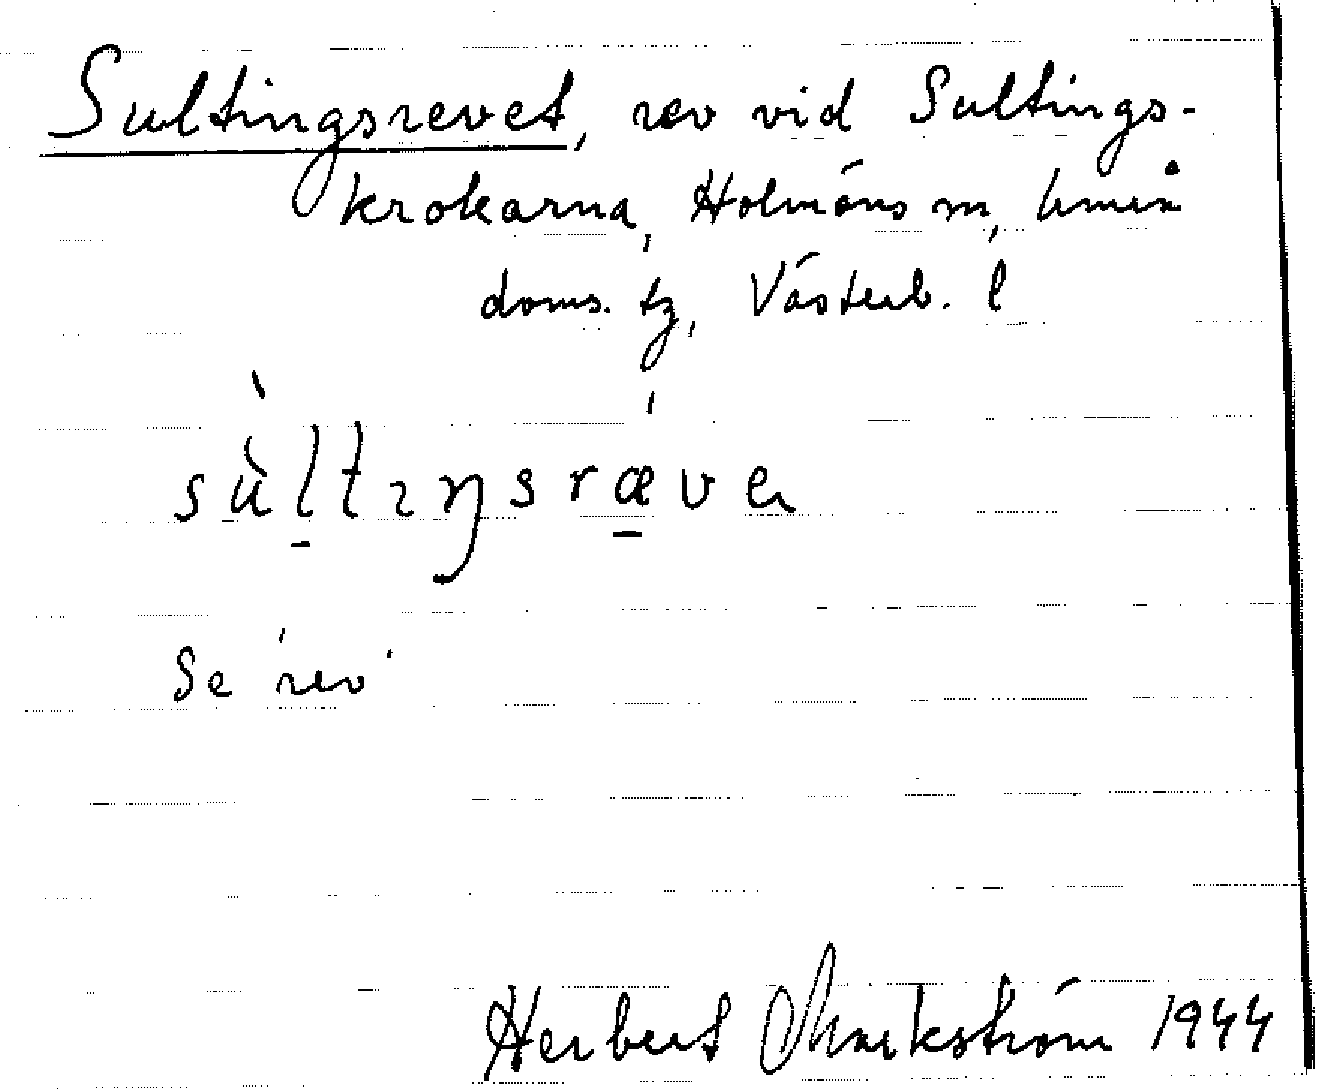 Sultingsrevet, rev vid Sultings-
krokarna, Holmöns sn, Umeå
doms. tg, Västerb. l
sùltıŋsrævɐ
Se 'rev'
Herbert Markström 1944